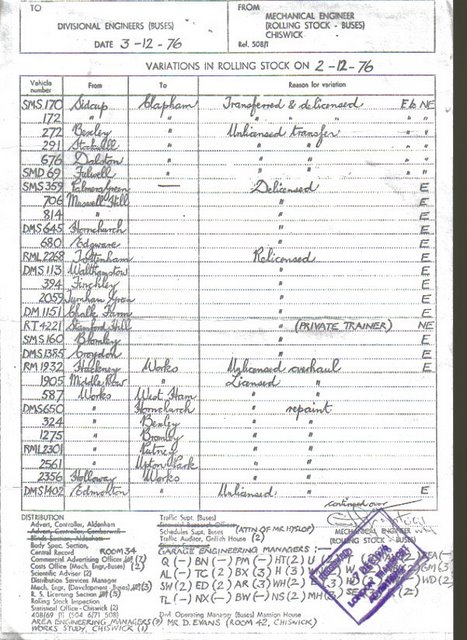 TO
DIVISIONAL ENGINEERS (BUSES)
DATE 3-12-76
FROM
MECHANICAL ENGINEER
(ROLLING STOCK - BUSES)
CHISWICK
Ref. 508/1
VARIATIONS IN ROLLING STOCK ON 2-12-76
Vehicle number From To Reason for variation
SMS 170 Sidcup Clapham Transferred & delicensed E to NE
172 " " " " "
272 Bexley " Unlicensed transfer " "
291 Stockwell " " " " "
676 Dalston " " " " "
SMD 69 Fulwell " " " " "
SMS 359 Palmers Green — Delicensed E
706 Muswell Hill " E
814 " " E
DMS 645 Hornchurch " E
680 Edgware " E
RML 2268 Tottenham Relicensed E
DMS 113 Walthamstow " E
394 Finchley " E
2059 Turnham Green " E
DM 1151 Chalk Farm " E
RT 4221 Stamford Hill " (PRIVATE TRAINER) NE
SMS 160 Bromley " E
DMS 1385 Croydon " E
RM 1932 Hackney Works Unlicensed overhaul E
1905 Middle Row " Licensed "
587 Works West Ham " "
DMS 650 " Hornchurch " repaint
324 " Bexley " "
1275 " Bromley " "
RML 2301 " Putney " "
2561 " Upton Park " "
2356 Holloway Works " "
DMS 1402 Edmonton " Unlicensed " E
continued over
DISTRIBUTION
Advert. Controller, Aldenham
Body Spec. Section
Central Record ROOM 34
Commercial Advertising Officer
Costs Office (Mech. Engr.-Buses)
Scientific Adviser
Distribution Services Manager
Mech. Engr. (Development - Buses)
R. S. Licensing Section
Rolling Stock Inspection
Statistical Office - Chiswick (2)
AREA ENGINEERING MANAGERS
WORKS STUDY, CHISWICK (1)
Traffic Supt. (Buses)
Schedules Supt. (Buses)
Traffic Auditor, Griffith House (2)
GARAGE ENGINEERING MANAGERS :—
Q (—) BN (—) PM (—) HT (3)
AL (—) TC (2) BX (3) H (3)
SW (2) ED (2) AR (3) WH (2)
TL (—) NX (—) BW (—) NS (2) MH (3)
Div. Operating Manager (Buses) Mansion House
MR D. EVANS (ROOM 42, CHISWICK)
MECHANICAL ENGINEER
(ROLLING STOCK - BUSES)